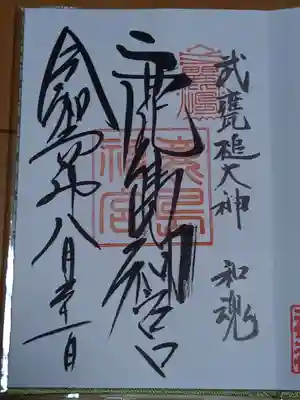 武甕槌大神 和魂
鹿島神宮
鹿島
神宮
令和 年八月 日